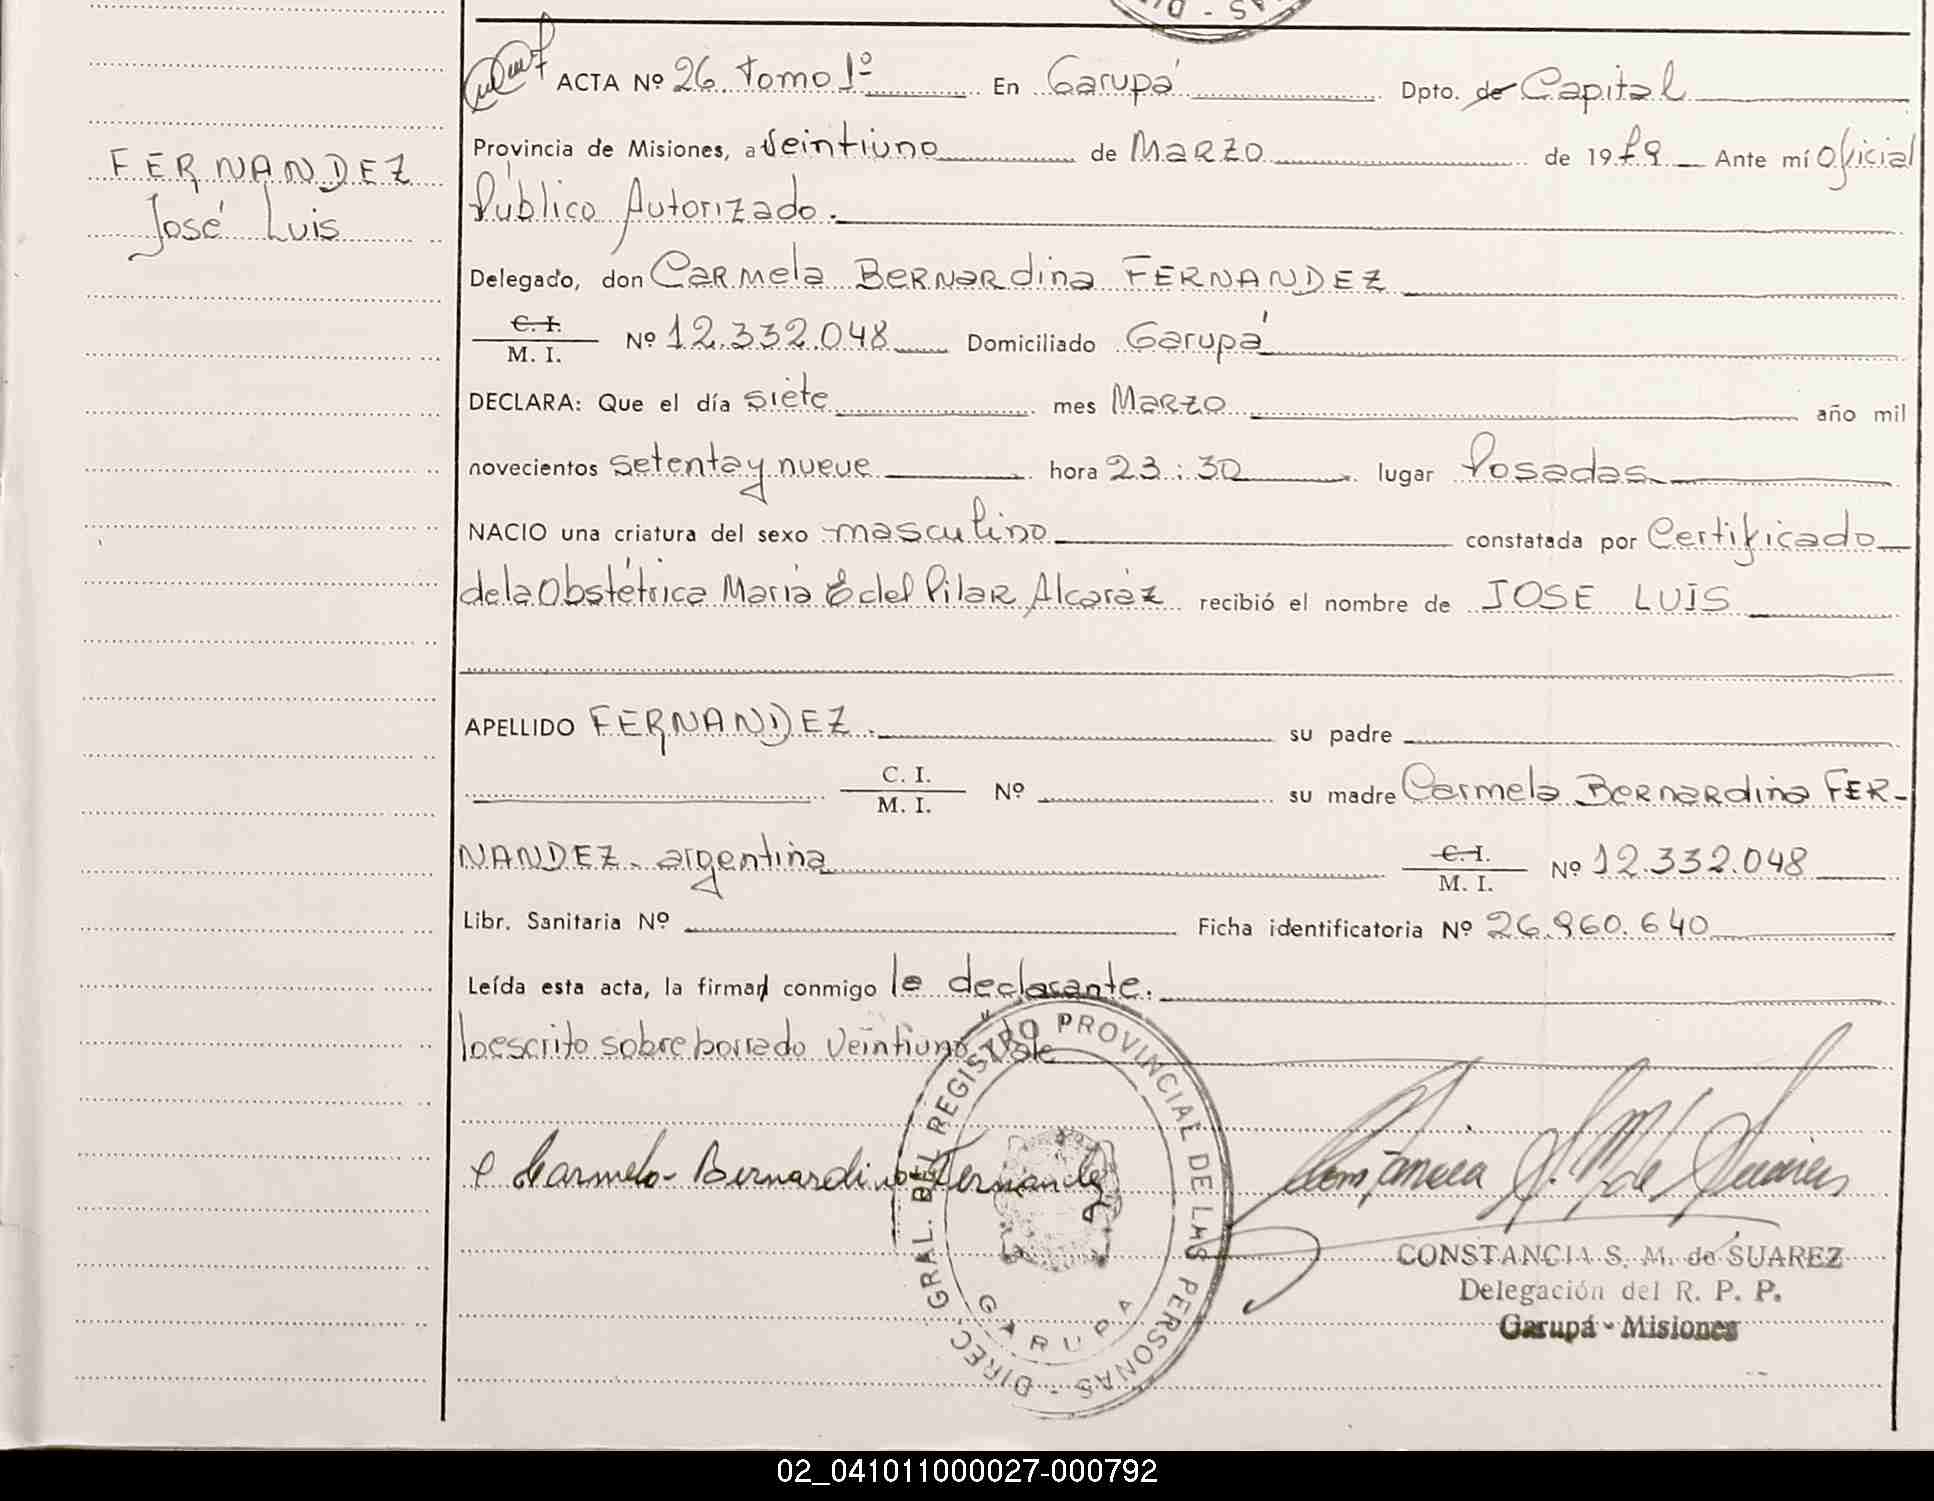 AS - DI
ACTA Nº 26 Tomo 1º En Garupá Dpto. de Capital
Provincia de Misiones, a Veintiuno de MARZO de 1979 Ante mí Oficial
Público Autorizado.
FERNANDEZ
José Luis
Delegado, don CARMela BERNARdina FERNANDEZ
C. I.
M. I. Nº 12.332.048 Domiciliado Garupá
DECLARA: Que el día siete mes MARZO año mil
novecientos setenta y nueve hora 23:30 lugar Posadas
NACIO una criatura del sexo masculino constatada por Certificado
de la Obstétrica María E del Pilar Alcaráz recibió el nombre de JOSE LUIS
APELLIDO FERNANDEZ. su padre
C. I.
M. I. Nº su madre Carmela BERNARdina FER-
NANDEZ - argentina C. I.
M. I. Nº 12.332.048
Libr. Sanitaria Nº Ficha identificatoria Nº 26.960.640
Leída esta acta, la firman conmigo la declarante.
lo escrito sobre borrado Veintiuno "Vale
Carmela Bernardina Fernandez
Constancia S. M. de Suarez
DIREC. GRAL. DEL REGISTRO PROVINCIAL DE LAS PERSONAS -
GARUPA
CONSTANCIA S. M. de SUAREZ
Delegación del R. P. P.
Garupá - Misiones
02_041011000027-000792